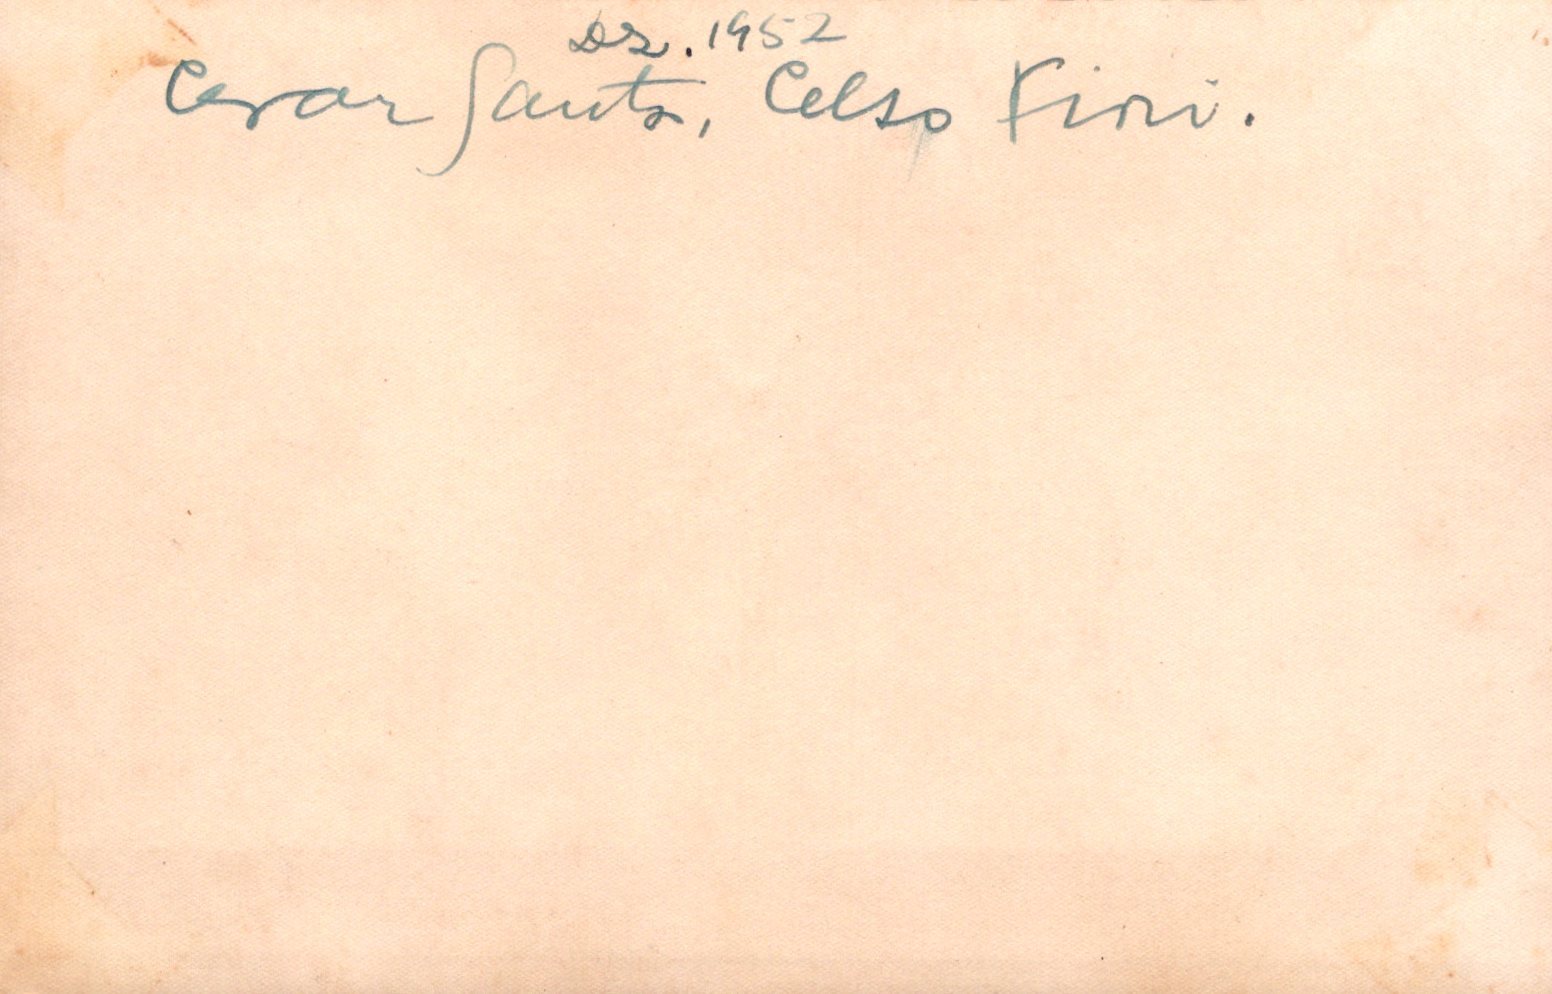 Dz. 1952
Cesar Santos, Celso Fiori.